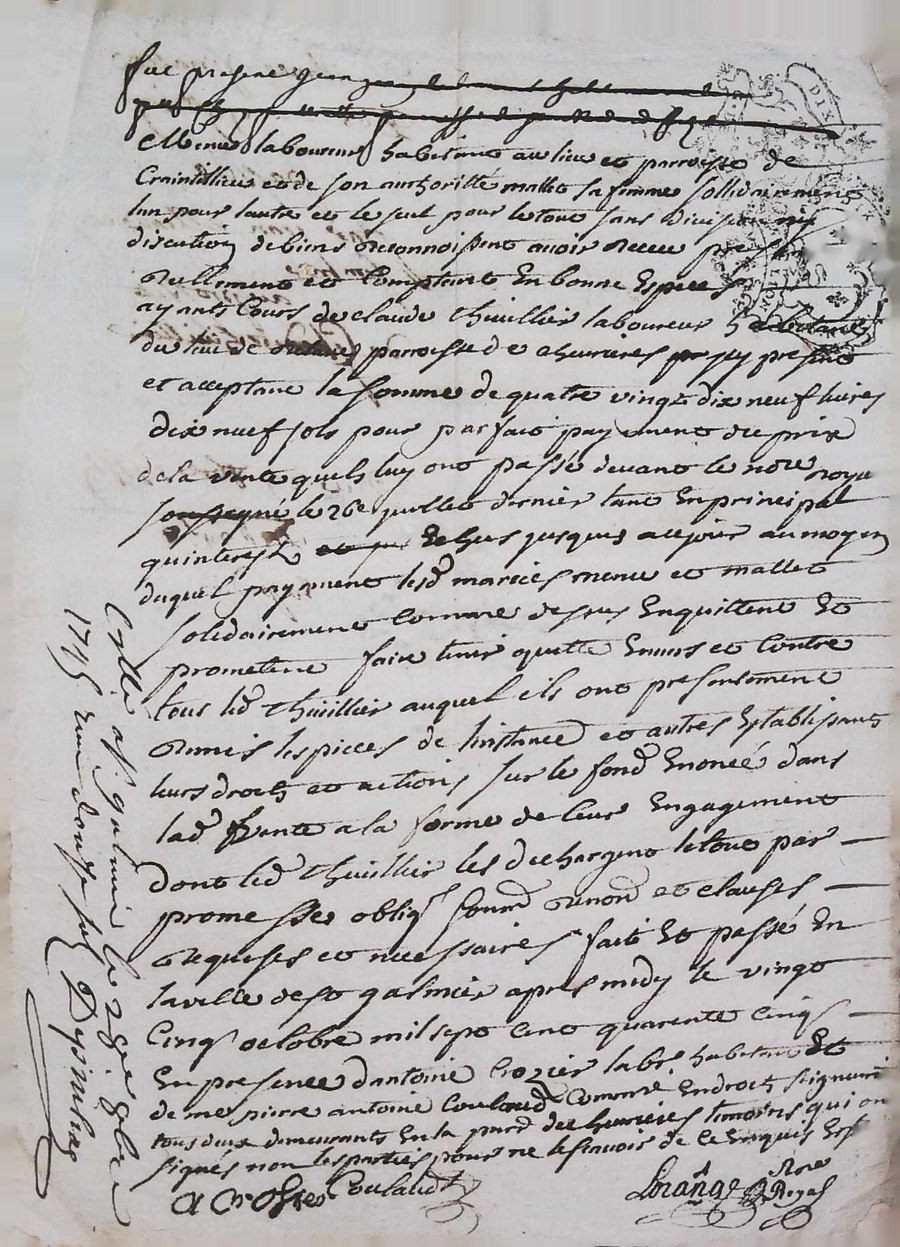 fut presens
Menu laboureur habitant au lieu et parroisse de
Craintillieu et de son authoritté mallet sa femme sollidairement
lun pour lautre et le seul pour le tout sans division ni
discution de biens reconnoissent avoir receu
reellement et comptant En bonne Especes
ayants Cours de claude thuillier laboureur
du lieu de parroisse de cheurieres present
et acceptant la somme de quatre vingt dix neuf livres
dix neuf sols pour parfait payement du prix
de la vente quils luy ont passé devant le nore royal
soussigné le 26e juillet dernier tant En principal
quinterest Echus jusques a ce jour au moyen
duquel payement lesd mariés menu et mallet
solidairement comme dessus Enquittent Et
promettent faire tenir quitte Envers et Contre
tous led thuillier auquel ils ont presentement
remis les pieces de linstance et autres Establissants
leurs droits et actions sur le fond Enoncé dans
lad vente a la forme de leur Engagement
dont led thuillier les decharge le tout par
promesses obligs soumd renond et clauses
requises et necessaires fait Et passé En
la ville de st galmier apres midy le vingt
Cinq octobre mil sept cent quarente Cinq
En presence dantoine Crozier labr habitant Et
de me pierre antoine Coulaud
tous deux demeurants En la parr de cheurieres temoins qui ont
signés non les parties pour ne le scavoir de ce Enquis Et
A Crosier Coulaud Lorange Nore Royal
Collé a st galmier le 28e 8bre
1745 recu douze sols
DIX